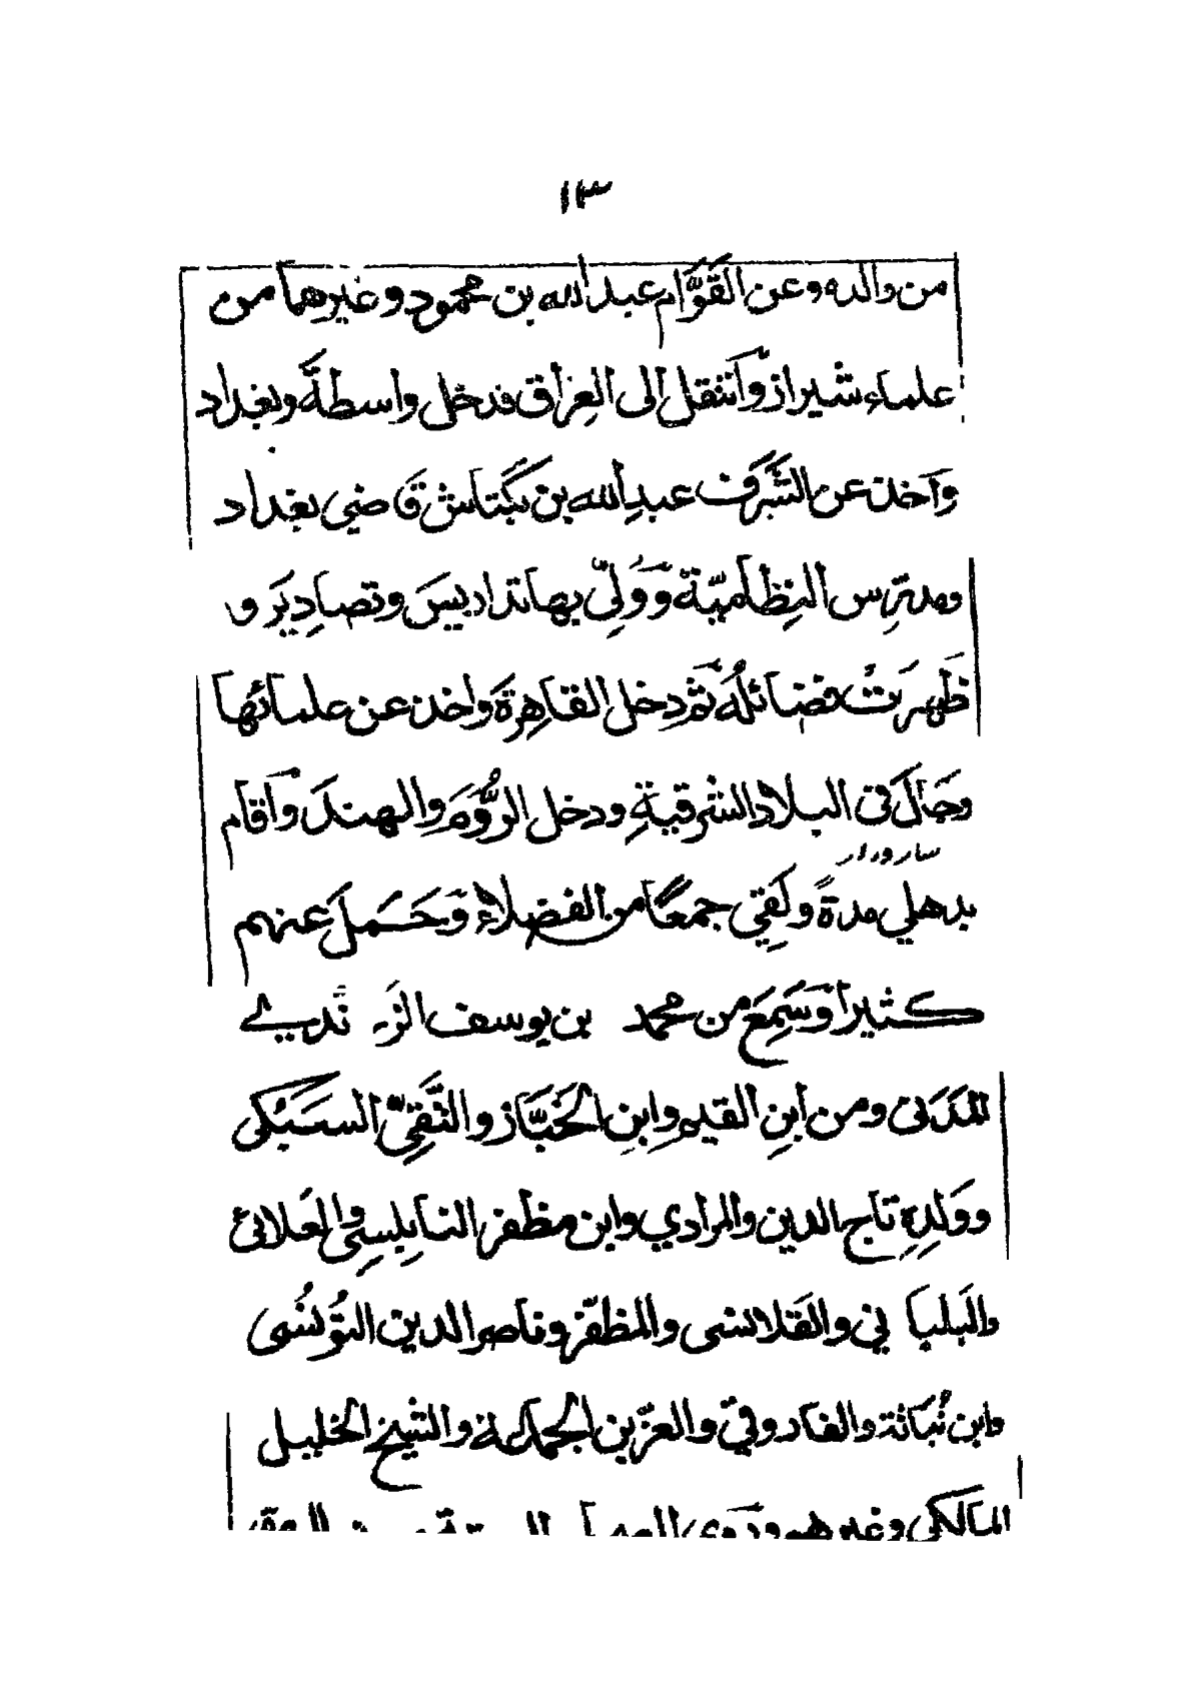 ١٣
من والده وعن القَوَّام عبد الله بن محمود وغيرهما من
علماء شيراز وآنتقل الى العراق فدخل واسطة وبغداد
وآخذ عن الشَّرَف عبدِ الله بن بَكْتاش قَاضي بغداد
ومدرِّس النِظَاميّة وَوُلِّيَ بها تداريسَ وتصادِيرَ و
ظَهرَتْ فضائلُهُ ثمّ دخل القاهِرةَ واخذ عن علمائها
وجَالَ فى البلاد الشرقيةِ ودخل الرُّومَ والهندَ وآقام
بدهلي مدةً ولَقِيَ جمعًا من الفضلاء وَحَمَلَ عنهم
كثيرا وَسَمِعَ من محمد بن يوسف الزَر نَدي
المَدَنى ومن ابنِ القيم وابنِ الخَبَّاز والتَّقِيِّ السُبْكى
وولدِهِ تاج الدين والمرادي وابن مظفر النابلسِى والعَلائى
والبلبا ني والقلانسى والمظفّر وناصر الدين التُونُسى
وابن نُبَاتة والفاروقيّ والعزّ بن الجماعة والشيخ الخليل
المالكى وغيرهم